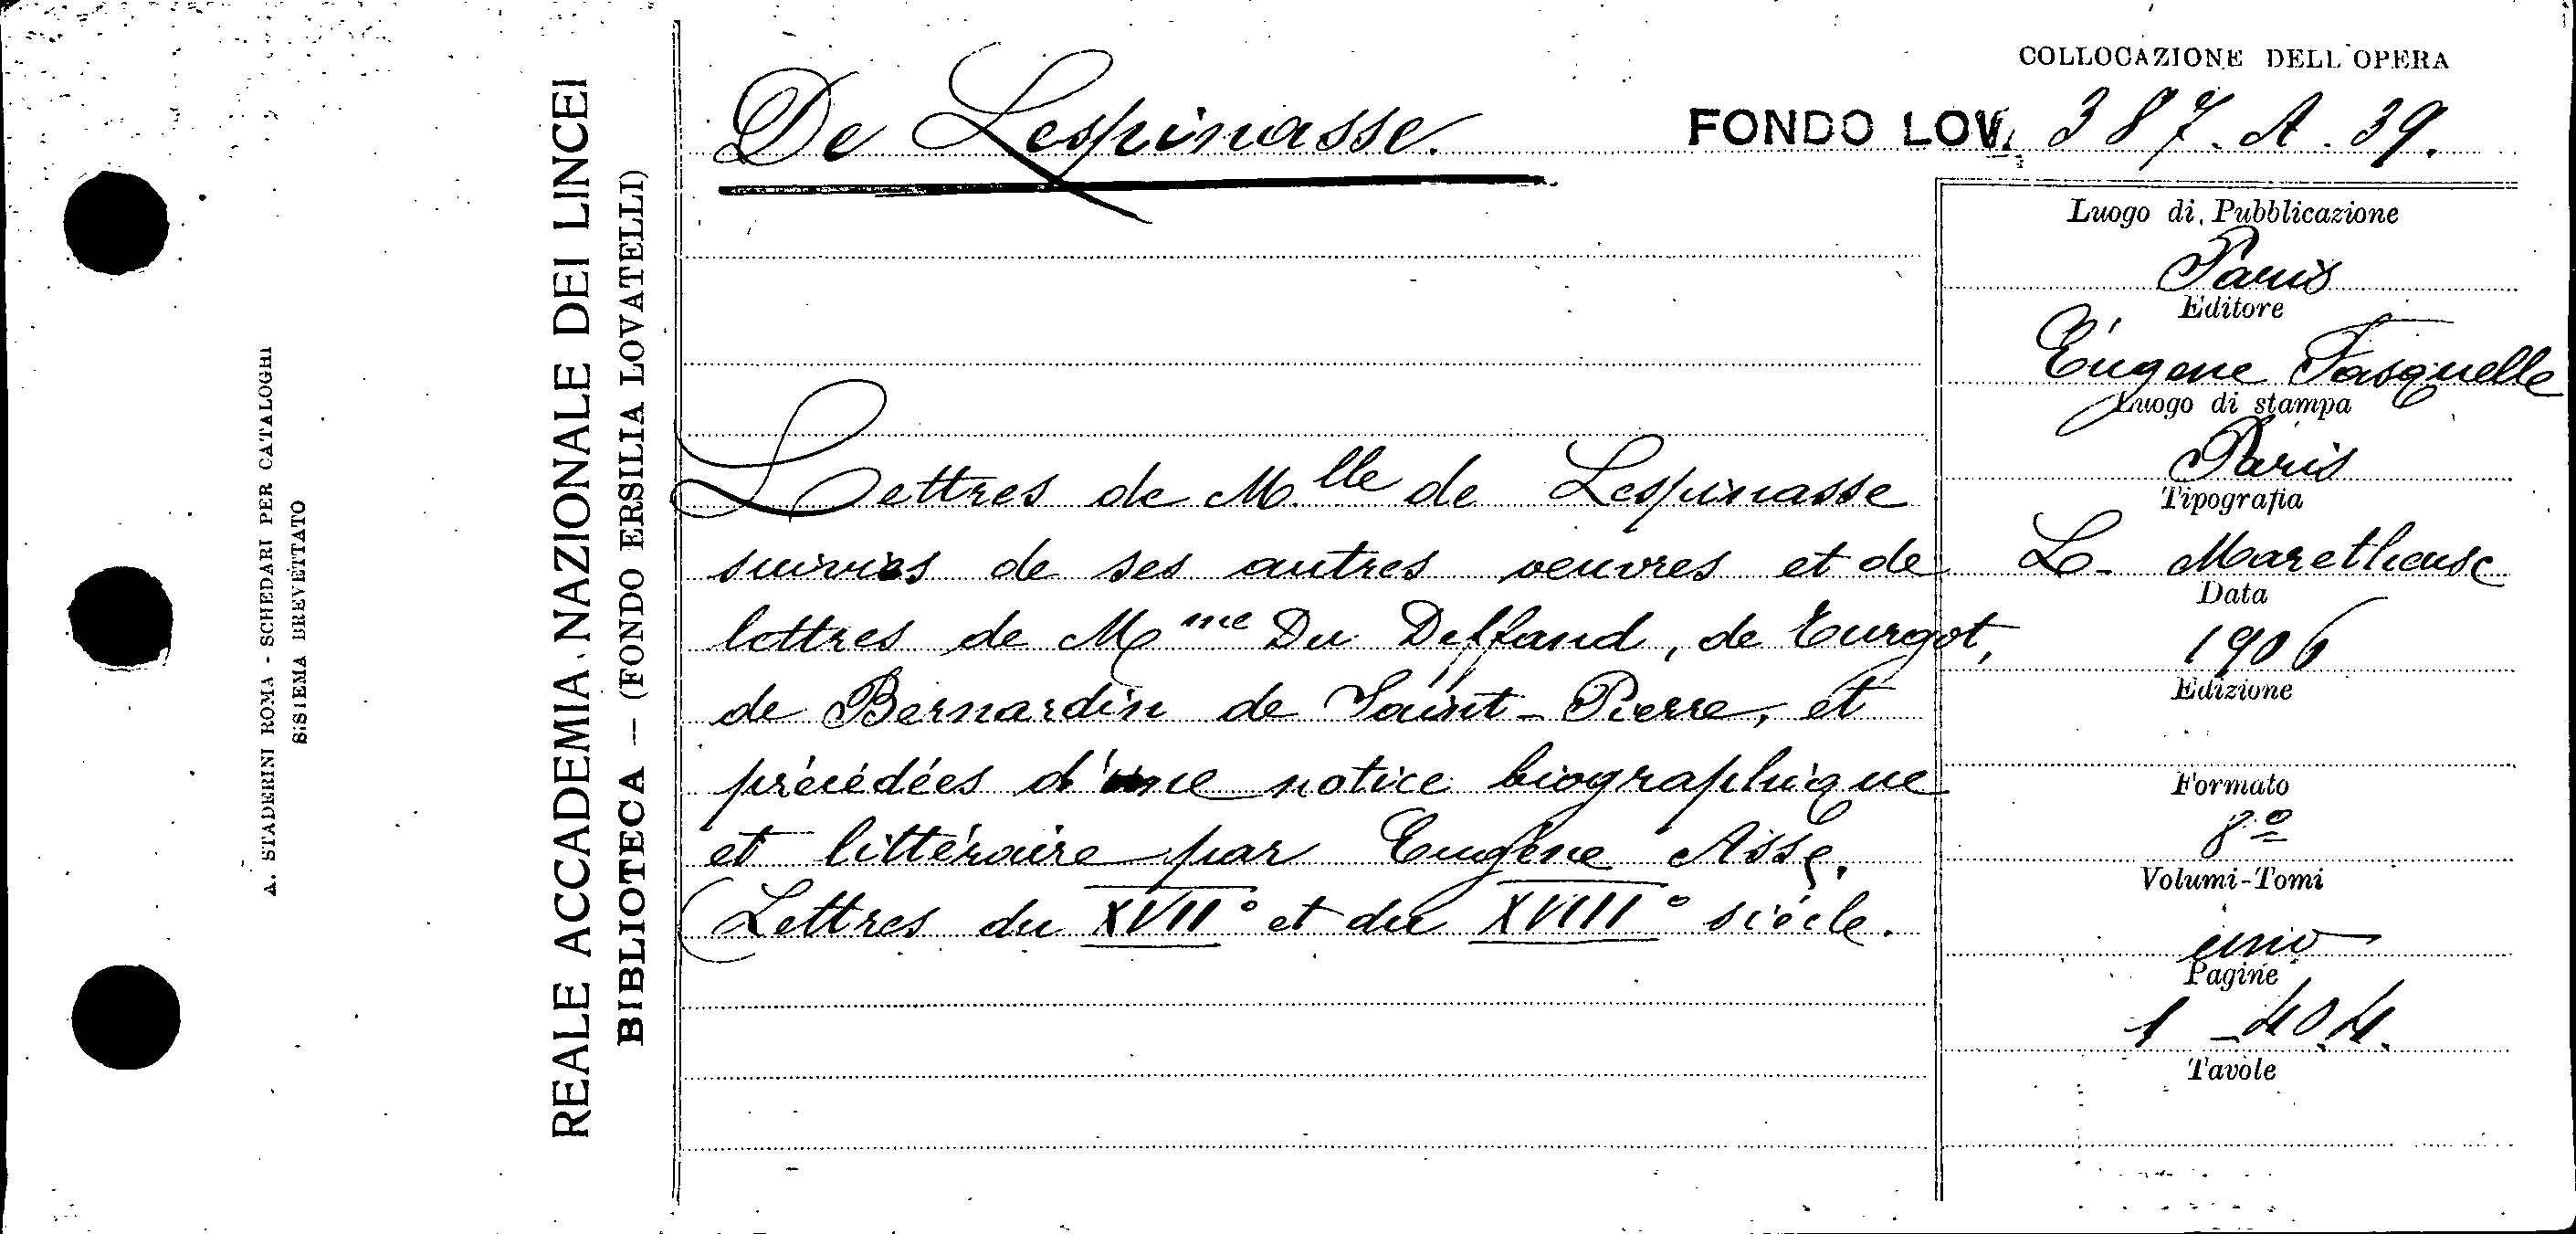 A. STADERINI ROMA - SCHEDARI PER CATALOGHI
SISTEMA BREVETTATO
REALE ACCADEMIA NAZIONALE DEI LINCEI
BIBLIOTECA — (FONDO ERSILIA LOVATELLI)
De Lespinasse.
COLLOCAZIONE DELL'OPERA
FONDO LOV. 387. A. 39.
Lettres de M.lle de Lespinasse
suivies de ses autres oeuvres et de
lettres de Mme Du Deffand, de Turgot,
de Bernardin de Saint-Pierre, et
précédées d'une notice biographique
et littéraire par Eugène Asse.
(Lettres du XVII° et du XVIII° siècle.
Luogo di Pubblicazione
Paris
Editore
Eugene Fasquelle
Luogo di stampa
Paris
Tipografia
L. Maretheuse
Data
1906
Edizione
Formato
8º
Volumi-Tomi
uno
Pagine
1-404.
Tavole